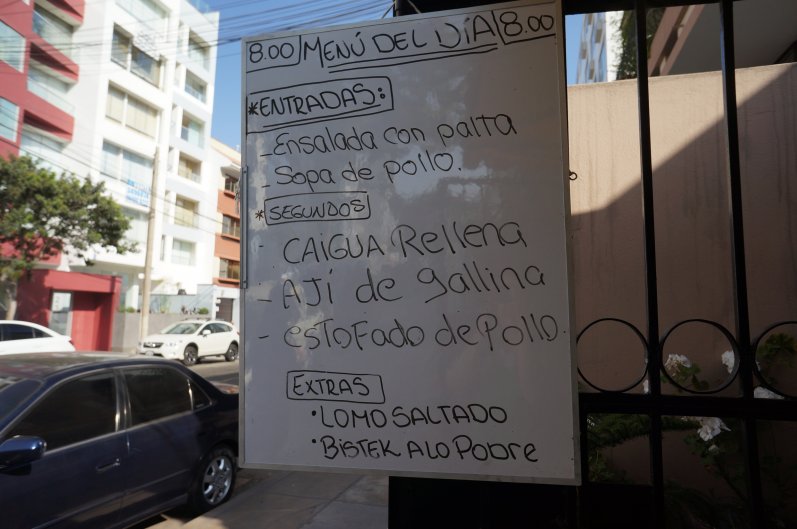 8.00 MENÚ DEL DÍA 8.00
*ENTRADAS:
- Ensalada con palta
- Sopa de pollo.
*SEGUNDOS
- CAIGUA Rellena
- AJÍ de gallina
- esTOFADO de Pollo.
EXTRAS
• LOMO SALTADO
• BISTEK A LO POBRE